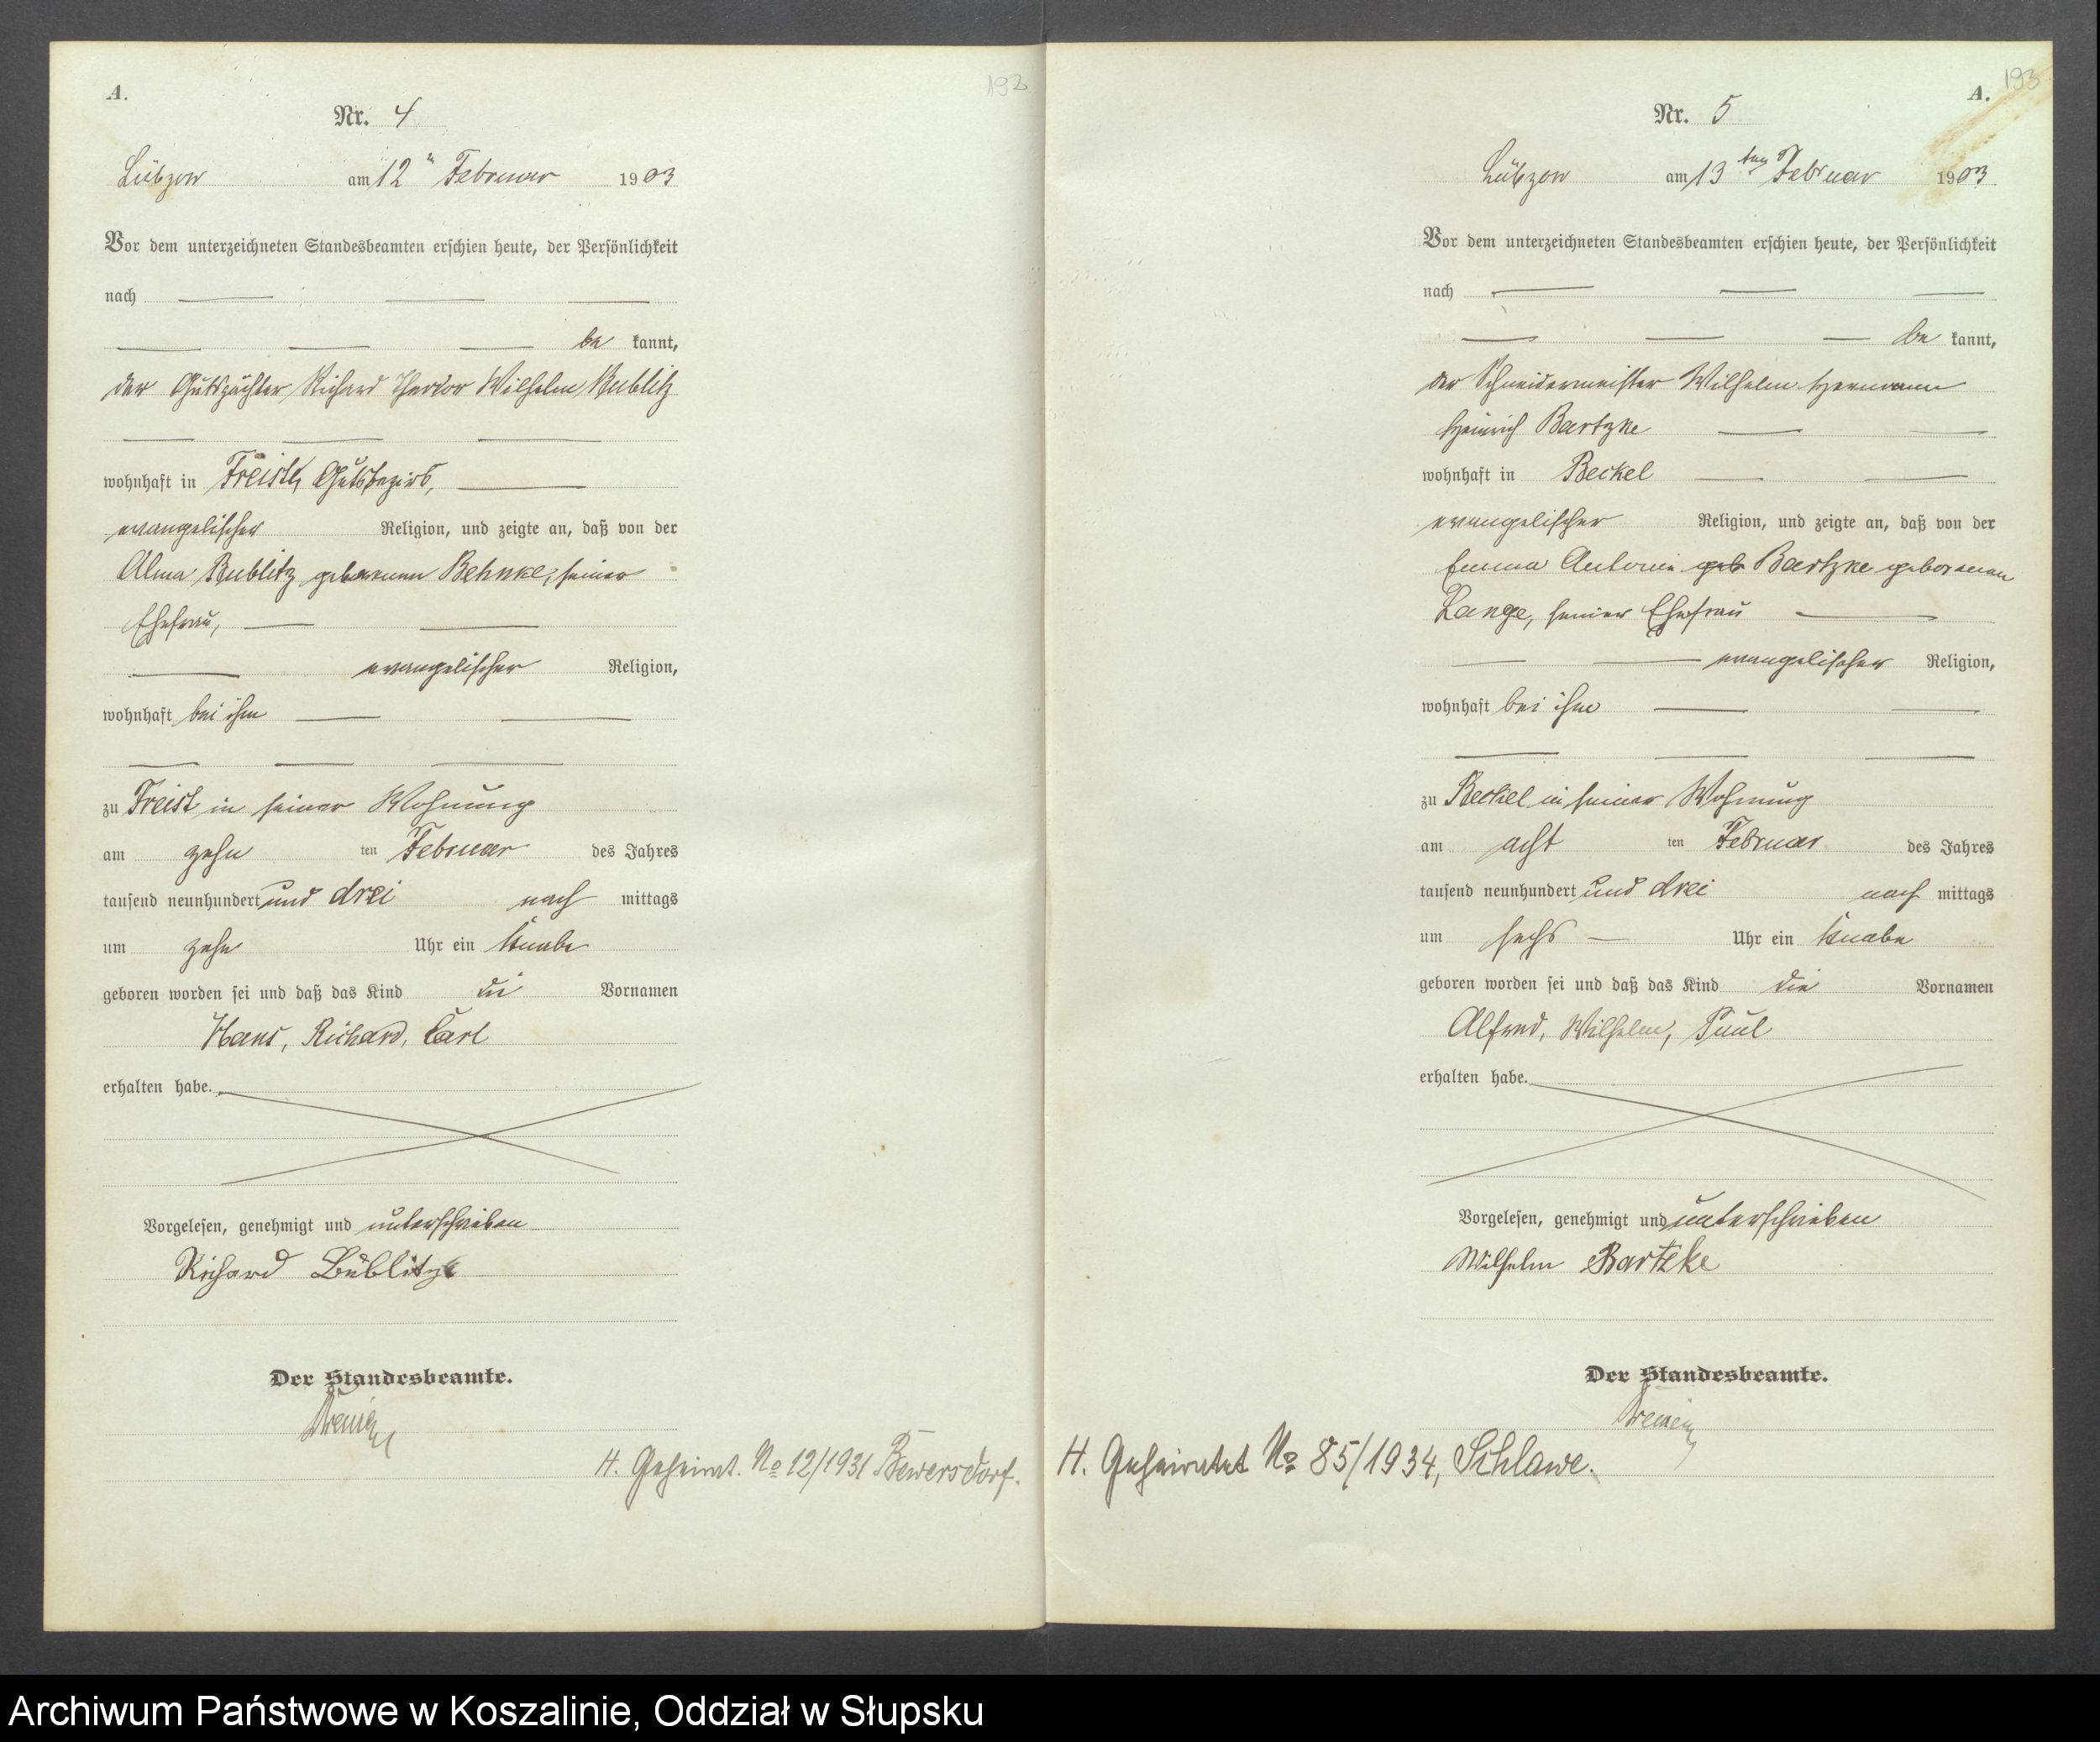 A.
192
Nr. 4
Lübzow am 12ten Februar 1903
Vor dem unterzeichneten Standesbeamten erschien heute, der Persönlichkeit
nach
be kannt,
der Gutspächter Richard Theodor Wilhelm Bublitz
wohnhaft in Freist, Gutsbezirk,
evangelischer Religion, und zeigte an, daß von der
Alma Bublitz geborenen Behnke, seiner
Ehefrau,
evangelischer Religion,
wohnhaft bei ihm
zu Freist in seiner Wohnung
am zehn ten Februar des Jahres
tausend neunhundert und drei nach mittags
um zehn Uhr ein Knabe
geboren worden sei und daß das Kind die Vornamen
Hans, Richard, Carl
erhalten habe.
Vorgelesen, genehmigt und unterschrieben
Richard Bublitz
Der Standesbeamte.
H. Geheirat. No 12/1931 Bewersdorf.
A.
193
Nr. 5
Lübzow am 13ten Februar 1903
Vor dem unterzeichneten Standesbeamten erschien heute, der Persönlichkeit
nach
be kannt,
der Schneidermeister Wilhelm Hermann
Heinrich Bartzke
wohnhaft in Beckel
evangelischer Religion, und zeigte an, daß von der
Emma Antonie geb Bartzke geborenen
Lange, seiner Ehefrau
evangelischer Religion,
wohnhaft bei ihm
zu Beckel in seiner Wohnung
am acht ten Februar des Jahres
tausend neunhundert und drei nach mittags
um sechs Uhr ein Knabe
geboren worden sei und daß das Kind die Vornamen
Alfred, Wilhelm, Paul
erhalten habe.
Vorgelesen, genehmigt und unterschrieben
Wilhelm Bartzke
Der Standesbeamte.
H. Geheiratet No 85/1934, Schlawe.
Archiwum Państwowe w Koszalinie, Oddział w Słupsku